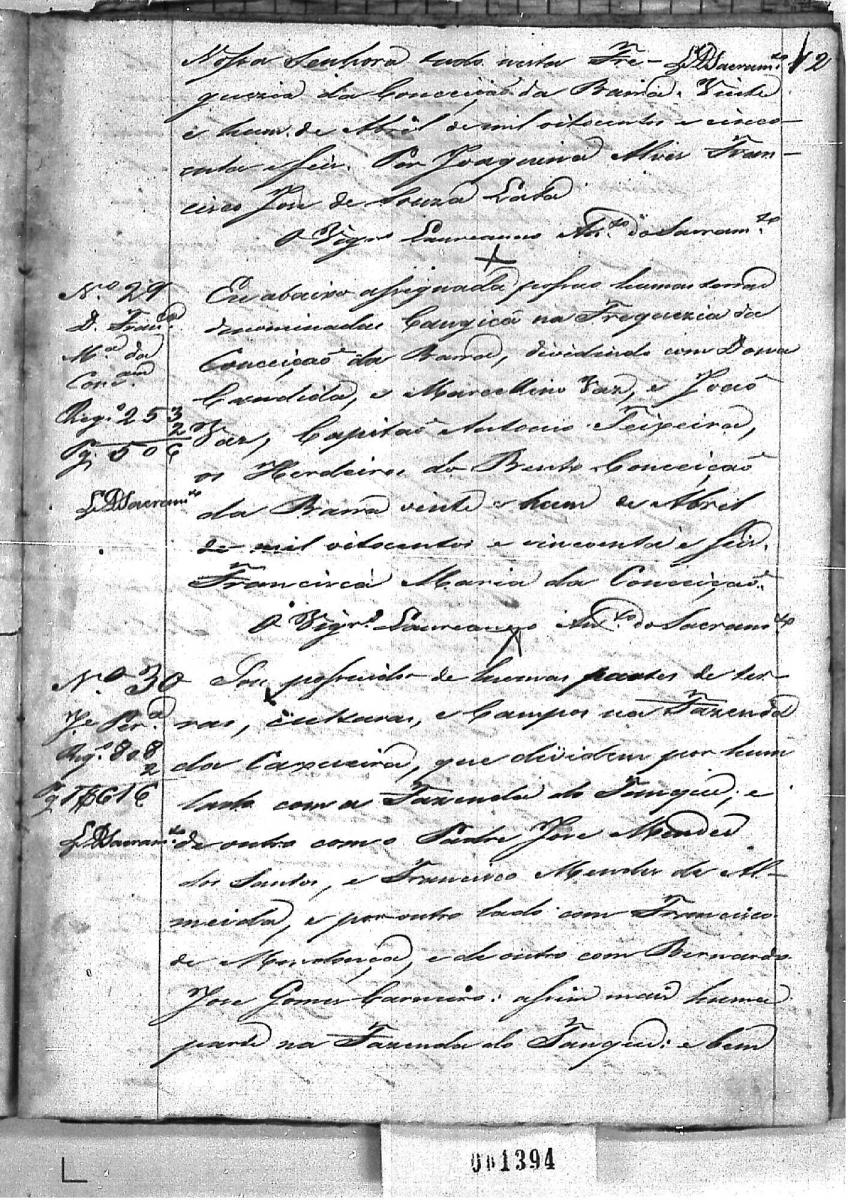 Nossa Senhora tudo nesta Fre- LPSacram.to 12
guezia da Conceição da Barra. Vinte
e hum de Abril de mil oitocentos e cinco-
enta e seis. Por Joaquina Alves Fran-
cisco Jose de Souza
O Vigr.o Laureanno An.to do Sacram.to
N.o 29
D. Fran.ca
M.a da
Conc.am
Reg.o 253
2
Pg. 506
LPSacram.to
Eu abaixo assignada possuo humas terras
denominadas Cangica na Freguezia da
Conceição da Barra, dividindo com Dona
Candida, e Marcellino Vaz, e João
Vaz, Capitão Antonio Teixeira,
os Herdeiros do Bento. Conceição
da Barra vente e hum de Abril
de mil oitocentos e cincoenta e seis.
Francisca Maria da Conceição.
O Vigr.o Laureanno An.to do Sacram.to
N.o 30
J.e Per.a
Reg.o 808
2
Pg 1616
LPSacram.to
Sou possuidor de humas partes de ter-
ras, culturas, e Campos na Fazenda
da Caxueira, que dividem por hum
lado com a Fazenda do Tanque, e
de outro com o Padre Jose Mendes
dos Santos, e Francisco Mendes de Al-
meida, e por outro lado com Francisco
de Mendonça, e de outro com Bernardo
Jose Gomes Carneiro: assim mais huma
parte na Fazenda do Tanque: e bem
001394